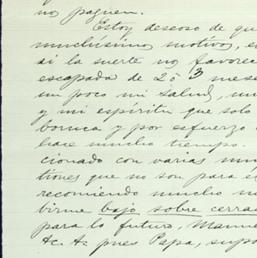 no paguen.
Estoy deseoso de que
muchísimo motivos, e
si la suerte no favorec
escapada de 2 ó 3 mese
un poco mi salud, 
y mi espíritu que solo
y por esfuerzo
hace mucho tiempo.
cionado con varias
tiones que no son para e
recomiendo mucho
birme bajo sobre cerra
para lo futuro,
&c. &c pues Papa, supo